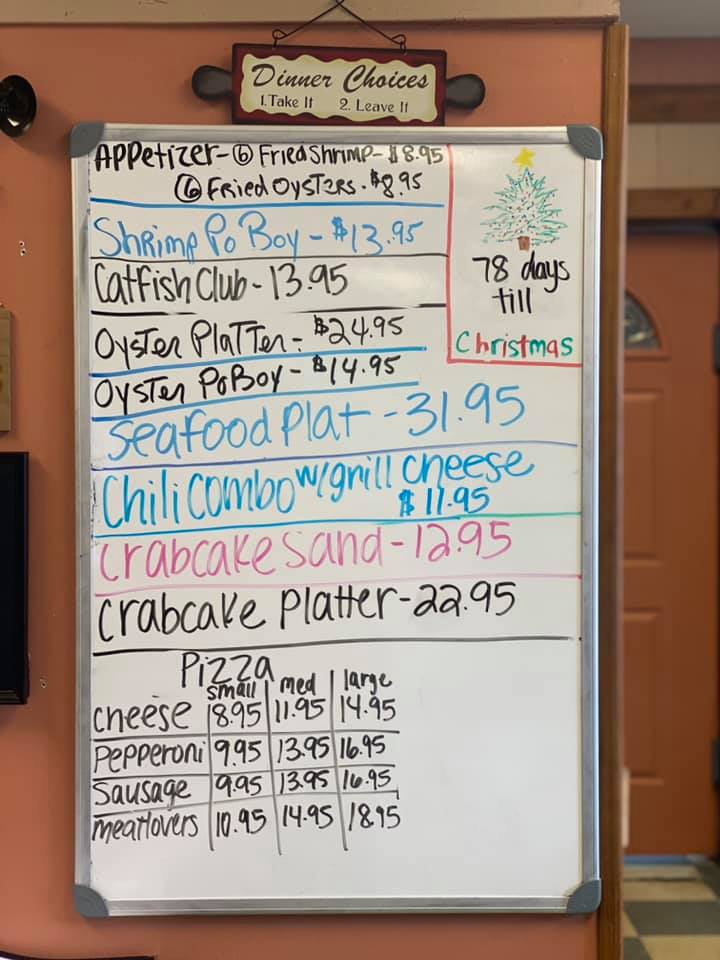 Dinner Choices
1. Take It 2. Leave It
Appetizer - 6 Fried Shrimp - $8.95
6 Fried Oysters - $8.95
Shrimp Po Boy - $13.95
Catfish Club - 13.95
78 days
till
Christmas
Oyster Platter - $24.95
Oyster PoBoy - $14.95
Seafood Plat - 31.95
Chili Combo w/grill cheese
$11.95
Crabcake Sand - 12.95
Crabcake Platter - 22.95
Pizza
small med large
Cheese 8.95 11.95 14.95
Pepperoni 9.95 13.95 16.95
Sausage 9.95 13.95 16.95
meatlovers 10.95 14.95 18.95